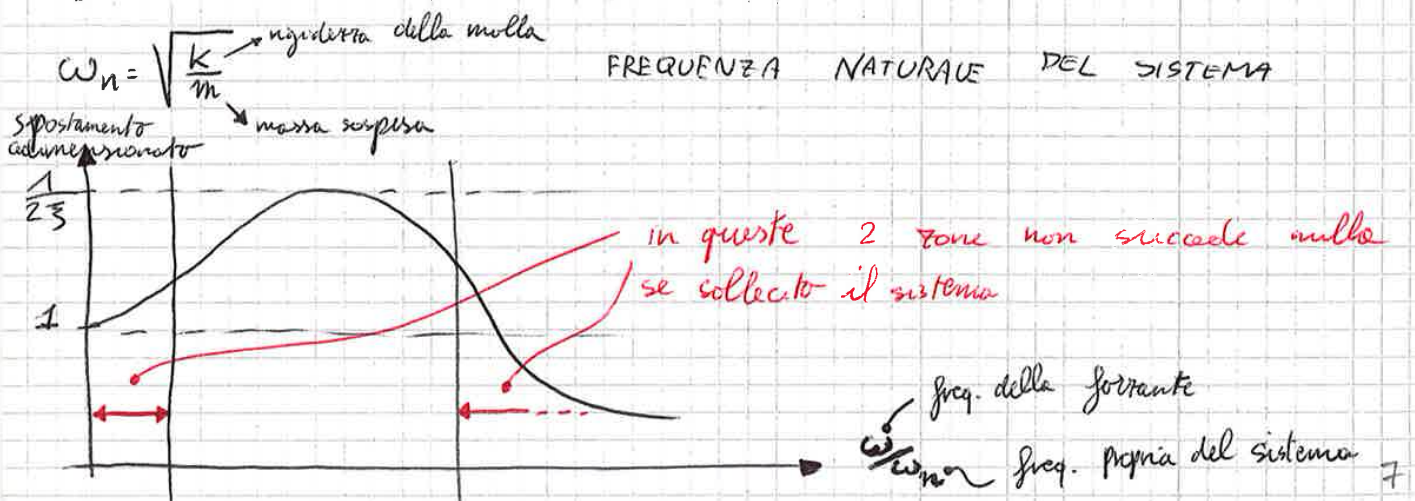 ωn = √(k/m) rigidezza della molla
FREQUENZA NATURALE DEL SISTEMA
massa sospesa
spostamento
adimensionato
1/2ξ
in queste 2 zone non succede nulla
se sollecito il sistema
1
freq. della forzante
ω/ωn freq. propria del sistema
7